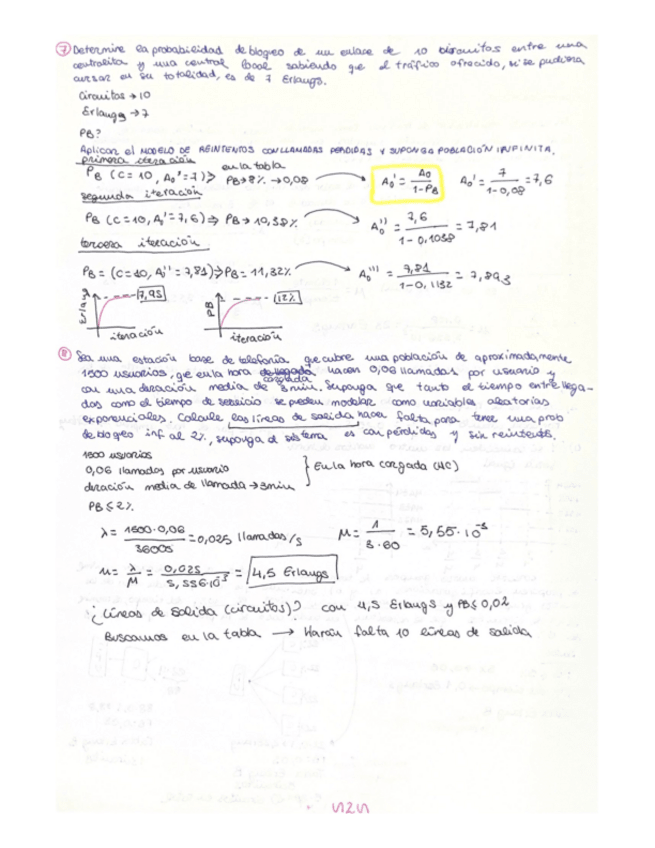 7 Determine la probabilidad de bloqueo de un enlace de 10 circuitos entre una
centralita y una central local sabiendo que el tráfico ofrecido, si se pudiera
cursar en su totalidad, es de 7 Erlangs.
Circuitos → 10
Erlangs → 7
PB?
Aplicar el MODELO DE REINTENTOS CON LLAMADAS PERDIDAS Y SUPONGA POBLACIÓN INFINITA.
primera iteración
PB (C=10, A0'=7) ⇒ en la tabla PB → 8% → 0,08 → A0' = A0 / 1-PB A0' = 7 / 1-0,08 = 7,6
segunda iteración
PB (C=10, A0'=7,6) ⇒ PB → 10,38% → A0'' = 7,6 / 1-0,1038 = 7,81
tercera iteración
PB = (C=10, A0''=7,81) ⇒ PB = 11,32% → A0''' = 7,81 / 1-0,1132 = 7,893
Erlang 7,95 PB 12%
iteración iteración
8 Sea una estación base de telefonía que cubre una población de aproximadamente
1500 usuarios, que en la hora cargada hacen 0,06 llamadas por usuario y
con una duración media de 3min. Suponga que tanto el tiempo entre llega-
das como el tiempo de servicio se pueden modelar como variables aleatorias
exponenciales. Calcule las líneas de salida hacen falta para tener una prob
de bloqueo inf al 2%, suponga el sistema es con pérdidas y sin reintentos.
1500 usuarios
0,06 llamadas por usuario } En la hora cargada (HC)
duración media de llamada → 3min
PB ≤ 2%
λ = 1500·0,06 / 3600s = 0,025 llamadas/s M = 1 / 3·60 = 5,55·10^-3
u = λ / M = 0,025 / 5,556·10^-3 = 4,5 Erlangs
¿Líneas de salida (circuitos)? con 4,5 Erlangs y PB ≤ 0,02
Buscamos en la tabla → Harán falta 10 líneas de salida